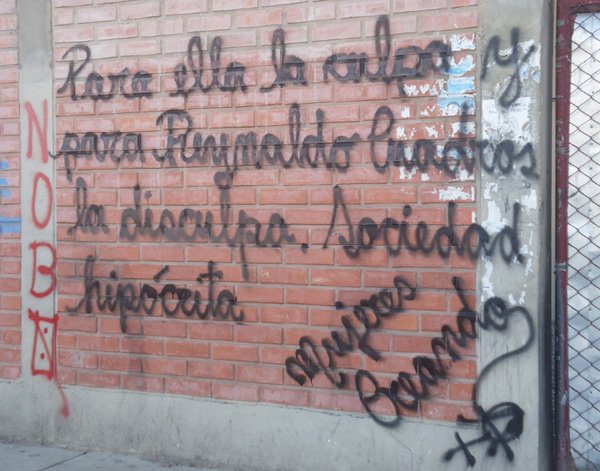 Para ella la culpa y
para Reynaldo Cuadros
la disculpa. Sociedad
hipócrita
Mujeres
Creando
NOB